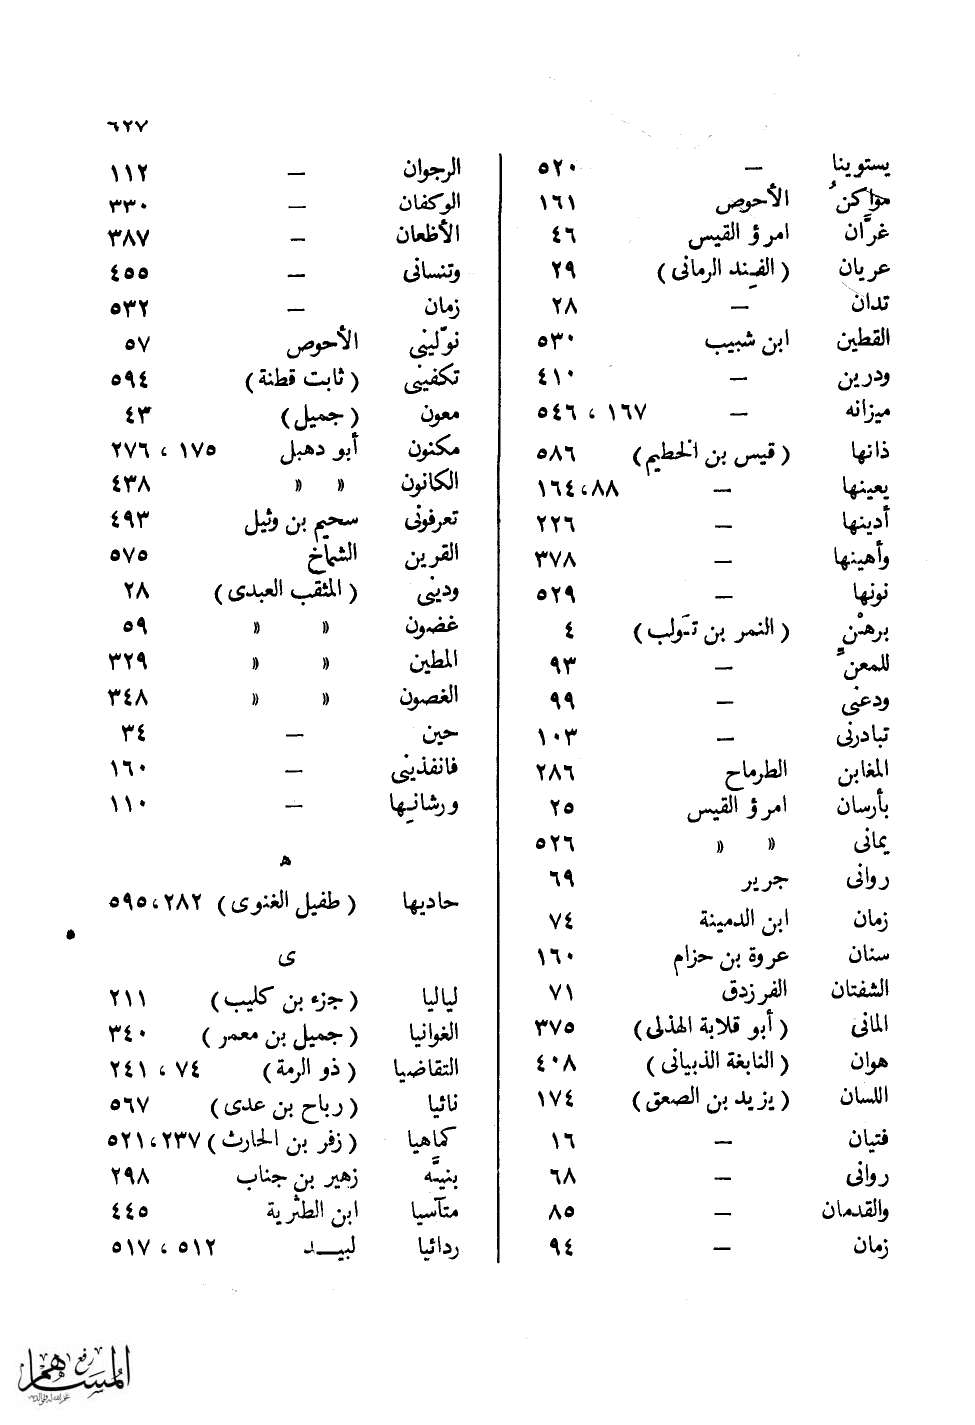 ٦٢٧
يستوينا — ٥٢٠
مواكنُ الأحوص ١٦١
غرَّان امرؤ القيس ٤٦
عريان (الفند الرمانى) ٢٩
تدان — ٢٨
القطين ابن شبيب ٥٣٠
ودرين — ٤١٠
ميزانه — ١٦٧ ، ٥٤٦
ذانها (قيس بن الخطيم) ٥٨٦
يعينها — ٨٨،١٦٤
أدينها — ٢٢٦
وأهينها — ٣٧٨
نونها — ٥٢٩
برهنْ (النمر بن تولب) ٤
للمعنّ — ٩٣
ودعنى — ٩٩
تبادرنى — ١٠٣
المغابن الطرماح ٢٨٦
بأرسان امرؤ القيس ٢٥
يمانى « « ٥٢٦
روانى جرير ٦٩
زمان ابن الدمينة ٧٤
سنان عروة بن حزام ١٦٠
الشفتان الفرزدق ٧١
المانى (أبو قلابة الهذلى) ٣٧٥
هوان (النابغة الذبيانى) ٤٠٨
اللسان (يزيد بن الصعق) ١٧٤
فتيان — ١٦
روانى — ٦٨
والقدمان — ٨٥
زمان — ٩٤
الرجوان — ١١٢
الوكفان — ٣٣٠
الأظعان — ٣٨٧
وتنسانى — ٤٥٥
زمان — ٥٣٢
نوّلينى الأحوص ٥٧
تكفينى (ثابت قطنة) ٥٩٤
معون (جميل) ٤٣
مكنون أبو دهبل ١٧٥ ، ٢٧٦
الكانون « « ٤٣٨
تعرفونى سحيم بن وثيل ٤٩٣
القرين الشماخ ٥٧٥
ودينى (المثقب العبدى) ٢٨
غضون « « ٥٩
المطين « « ٣٢٩
الغصون « « ٣٤٨
حين — ٣٤
فانفذينى — ١٦٠
ورشانيها — ١١٠
ه
حاديها (طفيل الغنوى) ٢٨٢،٥٩٥
ى
لياليا (جزء بن كليب) ٢١١
الغوانيا (جميل بن معمر) ٣٤٠
التقاضيا (ذو الرمة) ٧٤ ، ٢٤١
نائيا (رباح بن عدى) ٥٦٧
كماهيا (زفر بن الحارث) ٢٣٧،٥٢١
بنيَّه زهير بن جناب ٢٩٨
متآسيا ابن الطثرية ٤٤٥
ردائيا لبيـــد ٥١٢ ، ٥١٧
رفع
المساهم